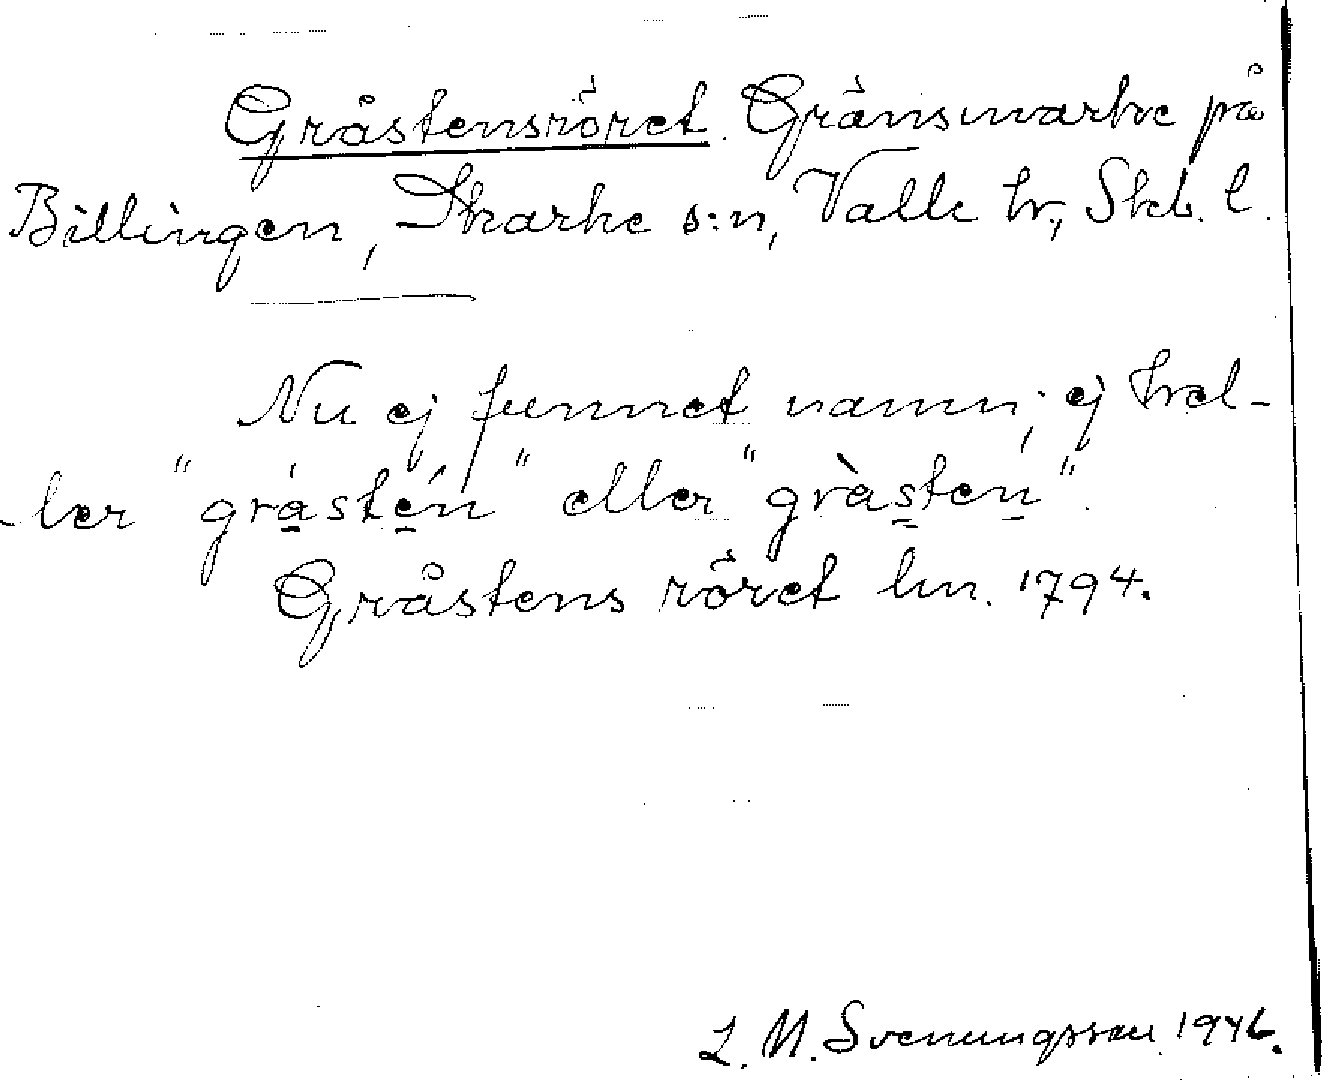 Gråstensröret. Gränsmärke på
Billingen, Skarke s:n, Valle hr, Skb. l.
Nu ej funnet namn; ej hel-
ler "gråstén" eller "gråsten".
Gråstens röret lm. 1794.
L. M. Svenungsson 1946.